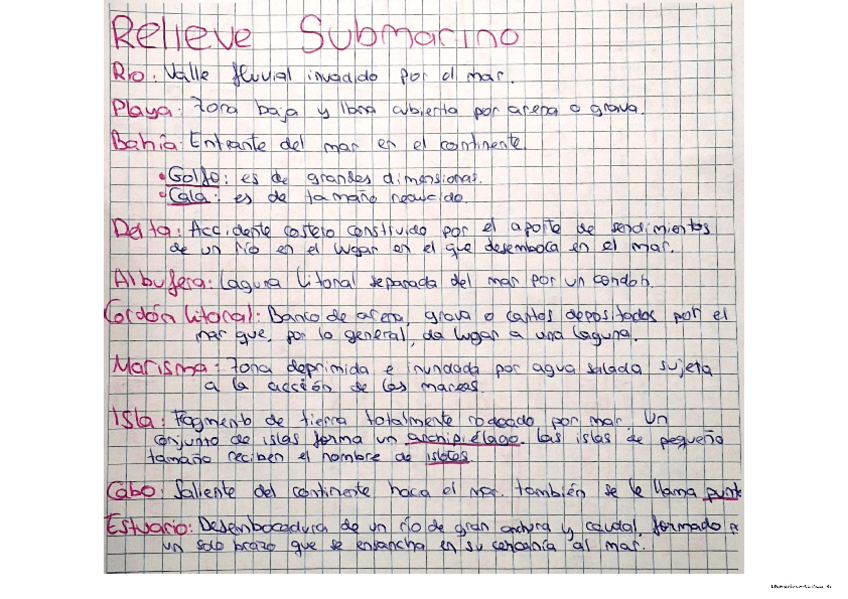 Relieve Submarino
Río: Valle fluvial invadido por el mar.
Playa: Zona baja y llana cubierta por arena o grava.
Bahía: Entrante del mar en el continente.
• Golfo: es de grandes dimensiones.
• Cala: es de tamaño reducido.
Delta: Accidente costero construido por el aporte de sendimientos
de un río en el lugar en el que desemboca en el mar.
Albufera: Laguna litoral separada del mar por un cordón.
Cordón litoral: Banco de arena, grava o cantos depositados por el
mar que, por lo general, da lugar a una laguna.
Marisma: Zona deprimida e inundada por agua salada sujeta
a la acción de las mareas.
Isla: Fragmento de tierra totalmente rodeado por mar. Un
conjunto de islas forma un archipiélago. Las islas de pequeño
tamaño reciben el nombre de islotes.
Cabo: Saliente del continente hacia el mar. también se le llama punta
Estuario: Desembocadura de un río de gran anchura y caudal, formado
un solo brazo que se ensancha en su cercanía al mar.